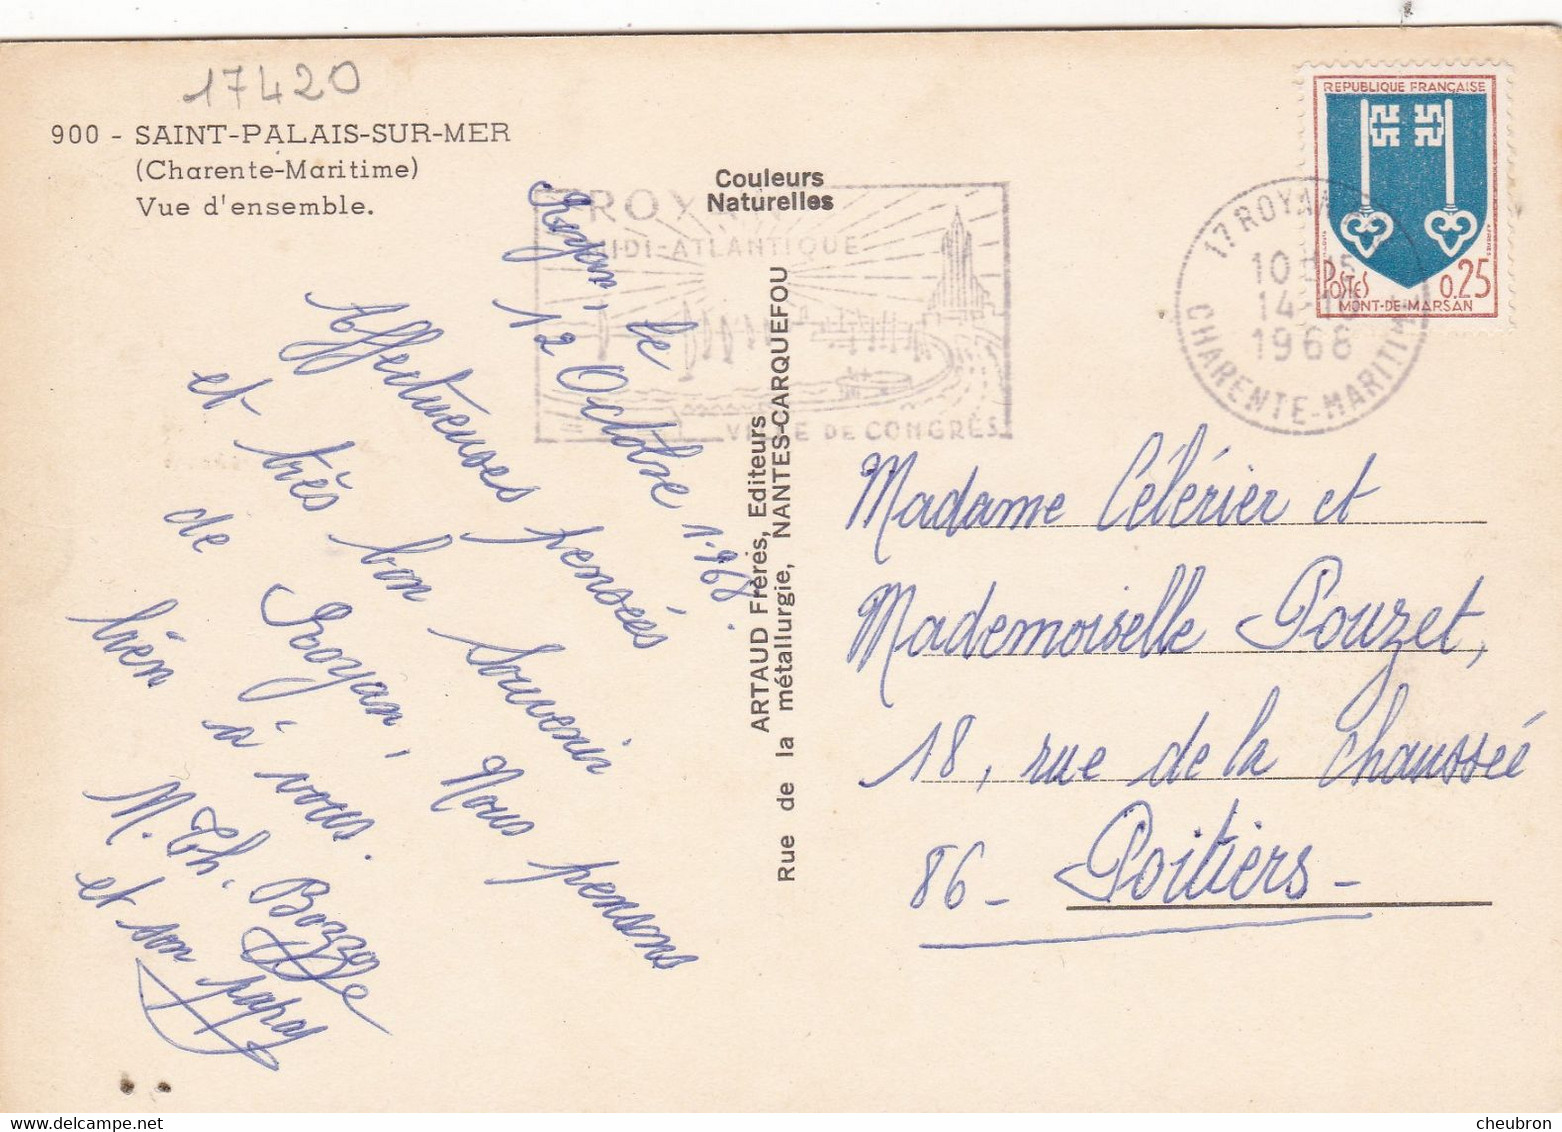 17420
900 - SAINT-PALAIS-SUR-MER
(Charente-Maritime)
Vue d'ensemble.
Couleurs
Naturelles
ROYAN
MIDI-ATLANTIQUE
VILLE DE CONGRÈS
17 ROYAN
14-
1968
CHARENTE-MARITIME
REPUBLIQUE FRANÇAISE
POSTES 0,25
MONT-DE-MARSAN
Royan, le
12 Octobre 1.968.
Affectueuses pensées
et très bon souvenir
de Royan, Nous pensons
bien à vous.
M. Th.
et son papa
ARTAUD Frères, Editeurs
Rue de la métallurgie, NANTES-CARQUEFOU
Madame Célérier et
Mademoiselle Pouzet,
18, rue de la Chaussée
86 - Poitiers -
cheubron